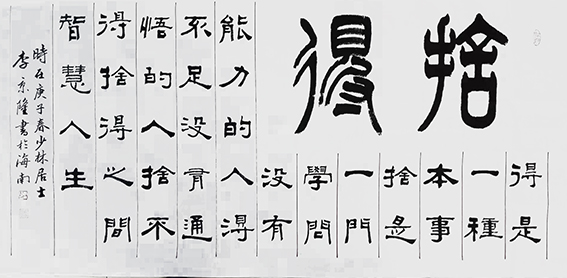 捨得
得是
一種
本事
捨是
一門
學問
没有
能力的人得
不足没有通
悟的人捨不
得捨得之間
智慧人生
時在庚子春少林居士
李京隆書於海南